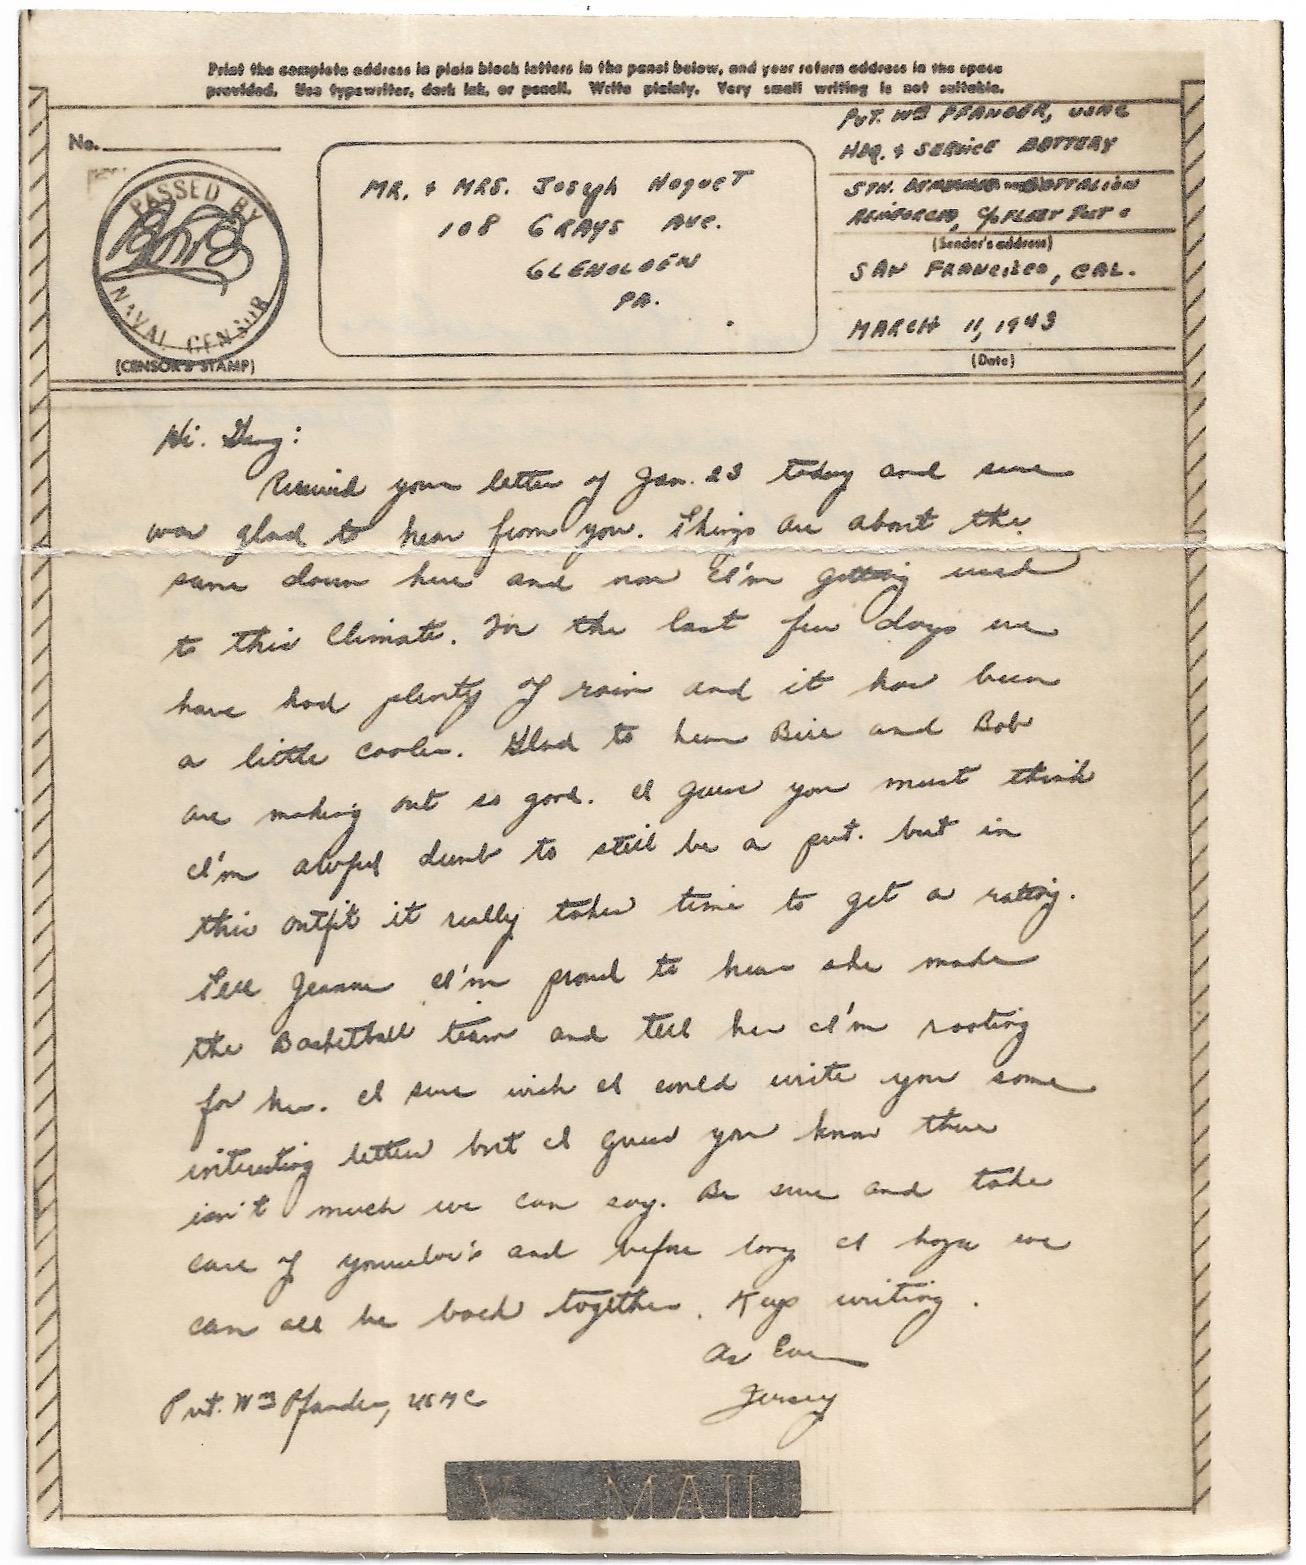 Print the complete address in plain block letters in the panel below, and your return address in the space
provided. Use typewriter, dark ink, or pencil. Write plainly. Very small writing is not suitable.
No.
PASSED BY
NAVAL CENSOR
(CENSOR'S STAMP)
MR. & MRS. Joseph Hoguet
108 GRAYS AVE.
GLENOLDEN
PA.
PVT. Wm PFANDER, USMC
HDQ. & SERVICE BATTERY
5TH. BATTALION
REINFORCED, C/O FLEET POST O
(Sender's address)
SAN FRANCISCO, CAL.
MARCH 11, 1943
(Date)
Hi. Gang:
Received your letter of Jan. 23 today and sure
was glad to hear from you. Things are about the
same down here and now I'm getting used
to this climate. For the last few days we
have had plenty of rain and it has been
a little cooler. Glad to hear Bill and Bob
are making out so good. I guess you must think
I'm awful dumb to still be a pvt. but in
this outfit it really takes time to get a rating.
Tell Jeanne I'm proud to hear she made
the Basketball team and tell her I'm rooting
for her. I sure wish I could write you some
interesting letters but I guess you know there
isn't much we can say. Be sure and take
care of yourselve's and before long I hope we
can all be back together. Keep writing.
As Ever
Jersey
Pvt. Wm Pfander, USMC
V - MAIL